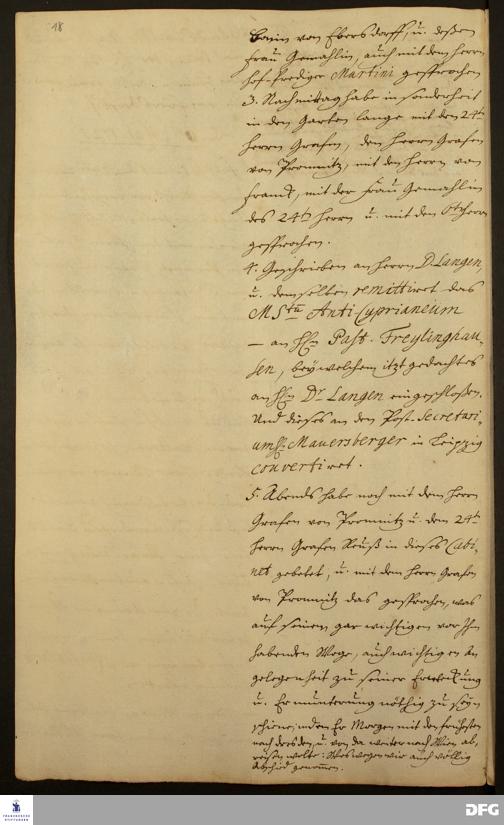 18
von Ebersdorff, u. deßen
Frau Gemahlin, auch mit dem Herrn
Hof-Prediger Martini gesprochen
3. Nachmittag habe in sonderheit
in dem Garten lange mit dem 24ten
Herrn Grafen, dem Herrn Grafen
von Promnitz, mit dem Herrn von
mit der Frau Gemahlin
des 24ten Herrn u. mit dem Herrn
gesprochen.
4. Geschrieben an Herrn D. Langen,
u. demselben remittiret das
MSto Anti-Cyprianeum
— an H. Past. Freylinghau-
sen, bey welchem itzt gedachtes
an H. Dr Langen eingeschloßen.
Und dieses an den Post-Secretari-
um H. Mauersberger in Leipzig
convertiret.
5. Abends habe noch mit dem Herrn
Grafen von Promnitz u. dem 24ten
Herrn Grafen Reuß in dieses Cabi-
net gebetet, u. mit dem Herrn Grafen
von Promnitz das gesprochen, was
auf seinem gar wichtigen vor Ihm
habenden Wege, auch wichtigen An
gelegenheit zu seiner Erweckung
u. Ermunterung nöthig zu seyn
schiene, indem Er Morgen mit dem frühsten
nach Dresden, u. von da weiter nach Wien ab,
reisen wolte: Weswegen wir auch völlig
Abschied genommen.
FRANCKESCHE
STIFTUNGEN
DFG